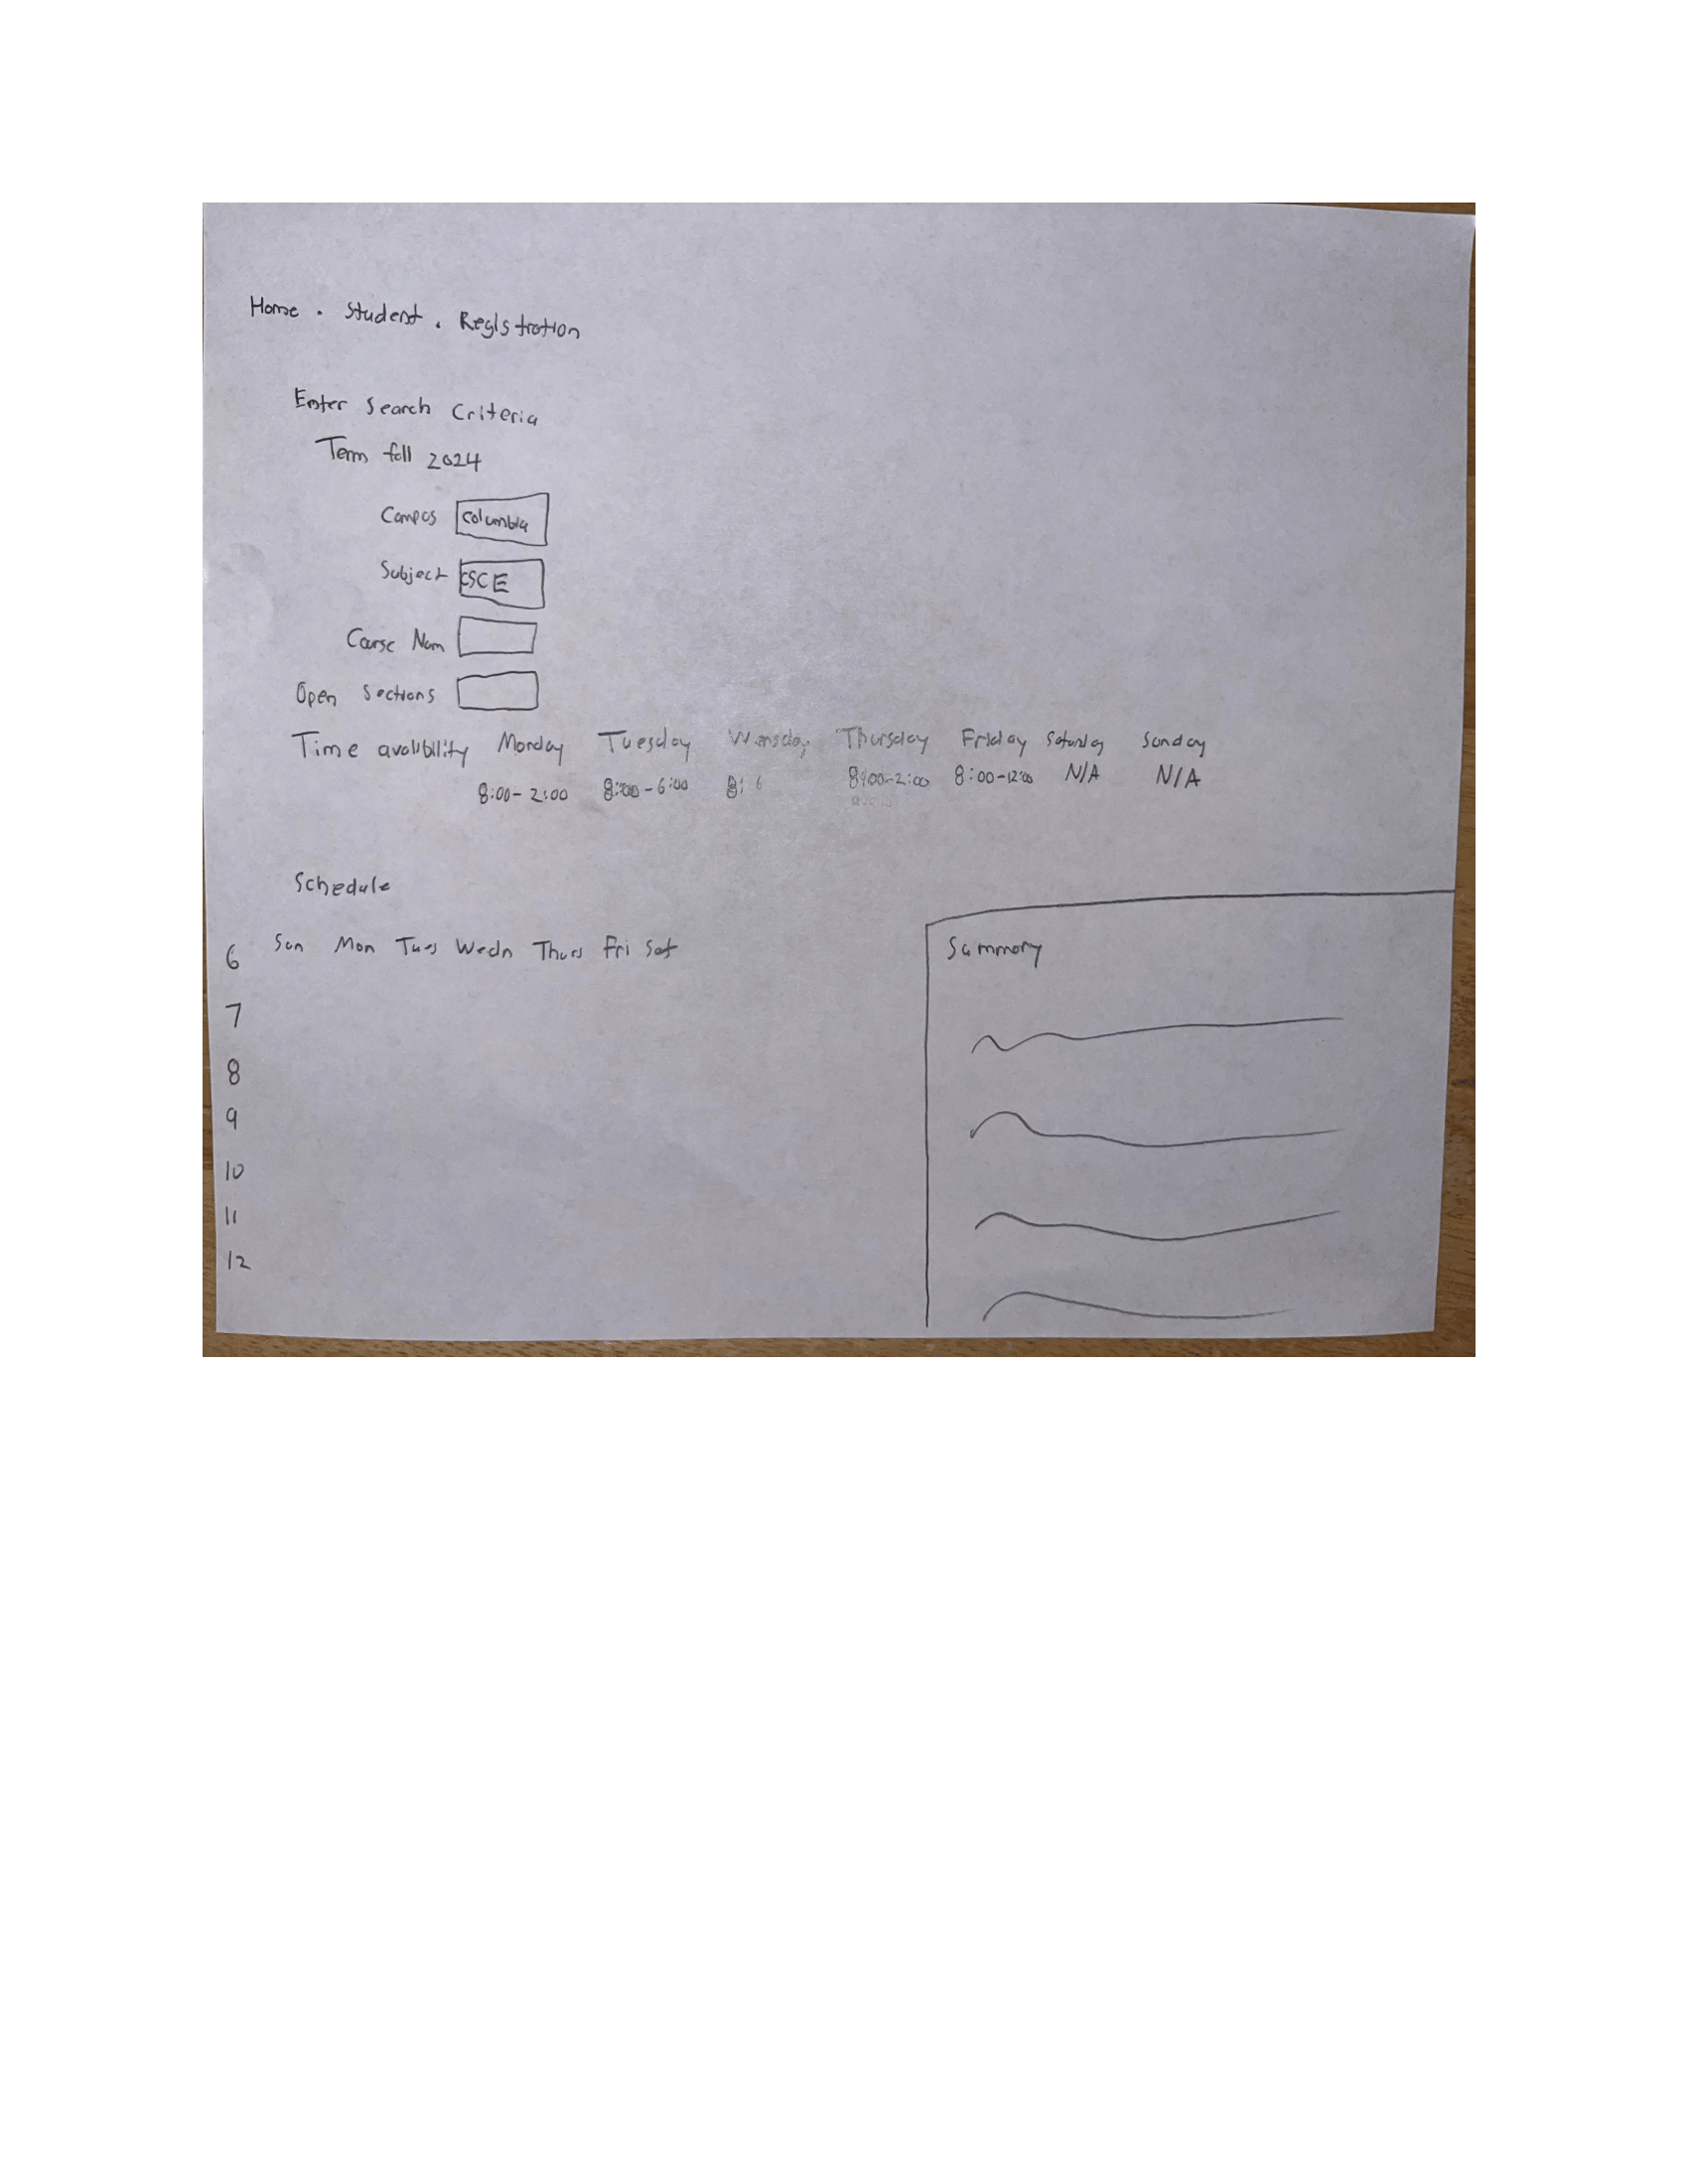 Home . Student . Registration
Enter Search Criteria
Term fall 2024
Campus Columbia
Subject CSCE
Course Num
Open Sections
Time avalibility Monday Tuesday Wensday Thursday Friday Saturday Sunday
8:00-2:00 8:00-6:00 8: 6 8:00-2:00 8:00-12:00 N/A N/A
Schedule
Sun Mon Tues Wedn Thurs Fri Sat
6
7
8
9
10
11
12
Summary